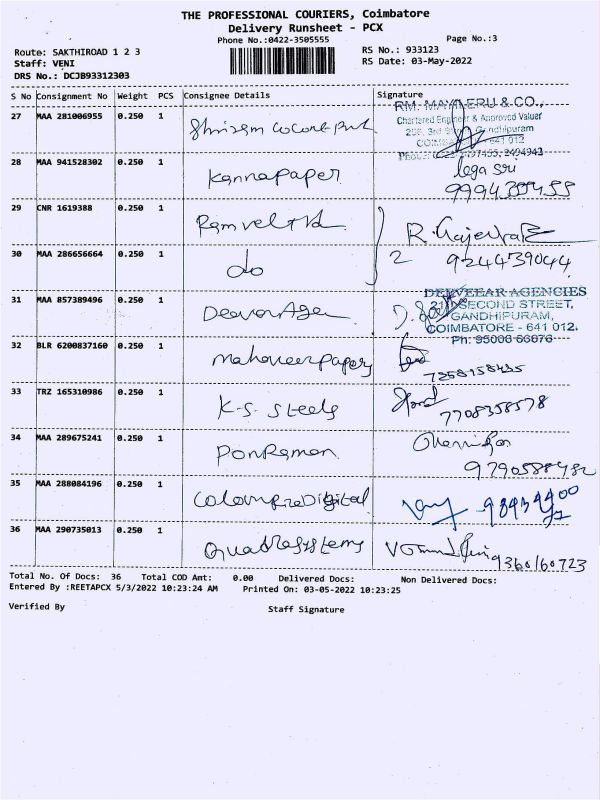 THE PROFESSIONAL COURIERS, Coimbatore
Delivery Runsheet - PCX
Phone No.:0422-3505555
Page No.:3
Route: SAKTHIROAD 1 2 3
RS No.: 933123
Staff: VENI
RS Date: 03-May-2022
DRS No.: DCJB93312303
S No Consignment No Weight PCS Consignee Details Signature
RM. MAYILERU & CO.,
Chartered Engineer & Approved Valuer
27 MAA 281006955 0.250 1
Gandhipuram
641 012
2494942
28 MAA 941528302 0.250 1 Kannapaper
29 CNR 1619388 0.250 1 Ramvel
30 MAA 286656664 0.250 1 do 2 924439044
31 MAA 857389496 0.250 1
DEEVEEAR AGENCIES
SECOND STREET,
GANDHIPURAM,
COIMBATORE - 641 012.
Ph: 95006 66676
32 BLR 6200837160 0.250 1 mahaveerpapers
33 TRZ 165310986 0.250 1 K-S-Steels
7708358578
34 MAA 289675241 0.250 1 PonRaman
35 MAA 288084196 0.250 1
36 MAA 290735013 0.250 1 Quadrasystems
9360160723
Total No. Of Docs: 36 Total COD Amt: 0.00 Delivered Docs: Non Delivered Docs:
Entered By :REETAPCX 5/3/2022 10:23:24 AM Printed On: 03-05-2022 10:23:25
Verified By Staff Signature